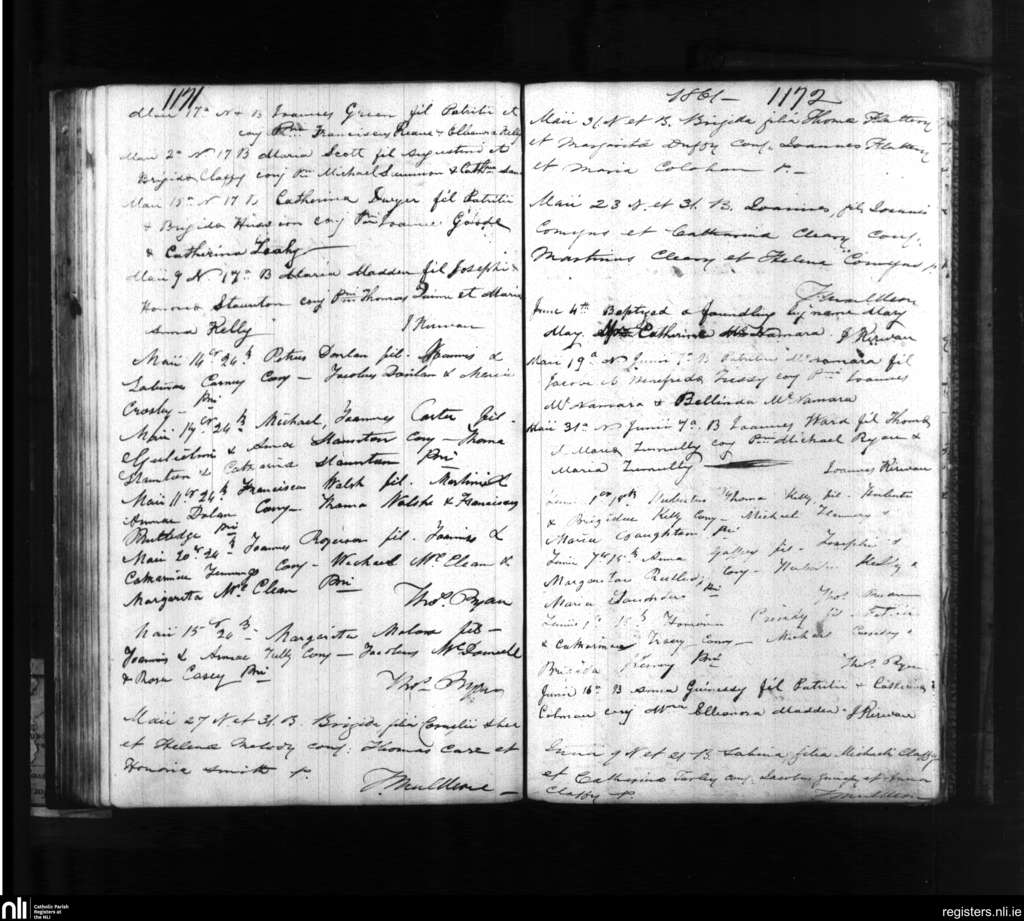 1171
Maii 17a N & B Joannes Green fil Patritii et
conj Pnn Franciscus Keane & Elleanora Kelly
Maii 2a N 17 B Maria Scott fil Augustini et
Brigida Claffy conj Pnn Michael &
Maii N 17 B Catherina Dwyer fil Patritii
& Brigida conj Pnn Joannes
& Catherina Leahy
Maii 9 N 17a B Maria Madden fil Josephi &
Honora Staunton conj Pnn Thomas et Maria
Anna Kelly J Kirwan
Maii 14 24 Petrus Donlan fil. Joannis &
Sabinae Carney Conj - Jacobus Donlan & Maria
Crosby - Pni
Maii 17 24 Michael, Joannes Carter fil.
Gulielmi & Annae Staunton Conj - Thoma
Staunton & Catharina Staunton Pni
Maii 11 24 Franciscus Walsh fil. Martini &
Annae Dolan Conj - Thoma Walsh & Franciscus
Rutledge Pni
Maii 20 24 Joannes fil. Joannis &
Catherinae Jennings Conj - Michael McClean &
Margarita McClean Pni
Thos. Ryan
Maii 15 26 Margarita Malone fil -
Joannis & Annae Kelly Conj - Jacobus McDonnell
& Rosa Casey Pni
Thos. Ryan
Maii 27 N et 31. B. Brigida filia Cornelii Shea
et Helena Melody conj: Thomas Care et
Honoria Smith P.
J. Muldoon
1861 - 1172
Maii 31 N et B. Brigida filia Thoma Flattery
et Margarita Duffy conj. Joannes Flattery
et Maria Colohan P. -
Maii 23 N. et 31. B. Joannes, fil. Joannis
Comyns et Catharina Cleary conj.
Martinus Cleary et Helena Comyns P.
J. Muldoon
June 4th Baptized a foundling by name Mary
May Catherine McNamara. J Kirwan
Maii 19a N Junii B Patritius McNamara fil
Jacobi et Winefrida Tressy conj Pnn Joannes
McNamara & Bellinda McNamara
Maii 31a N Junii 7a. B Joannes Ward fil Thoma
& Maria Tunnelly conj Pnn Michael Ryan &
Maria Tunnelly Joannes Kirwan
Junii Hubertus Thoma Kelly fil. Huberti
& Brigidae Kelly Conj - Michael
Maria Naughton Pni
Junii Anna fil. Josephi &
Margaritae Conj -
Maria Pni Thos. Ryan
Junii Patritii
& Catherinae Tracy Conj - Michael
Brigida Pni Thos. Ryan
Junii 16a B Anna Guinessy fil Patritii & Catherina
Colman conj Mna Elleonora Madden. J Kirwan
Junii 9 N et B. Sabina, filia Michaeli Claffy
et Catharina Turley conj. Jacobus et Anna
Claffy P. J. Muldoon
nli Catholic Parish
Registers at
the NLI
registers.nli.ie